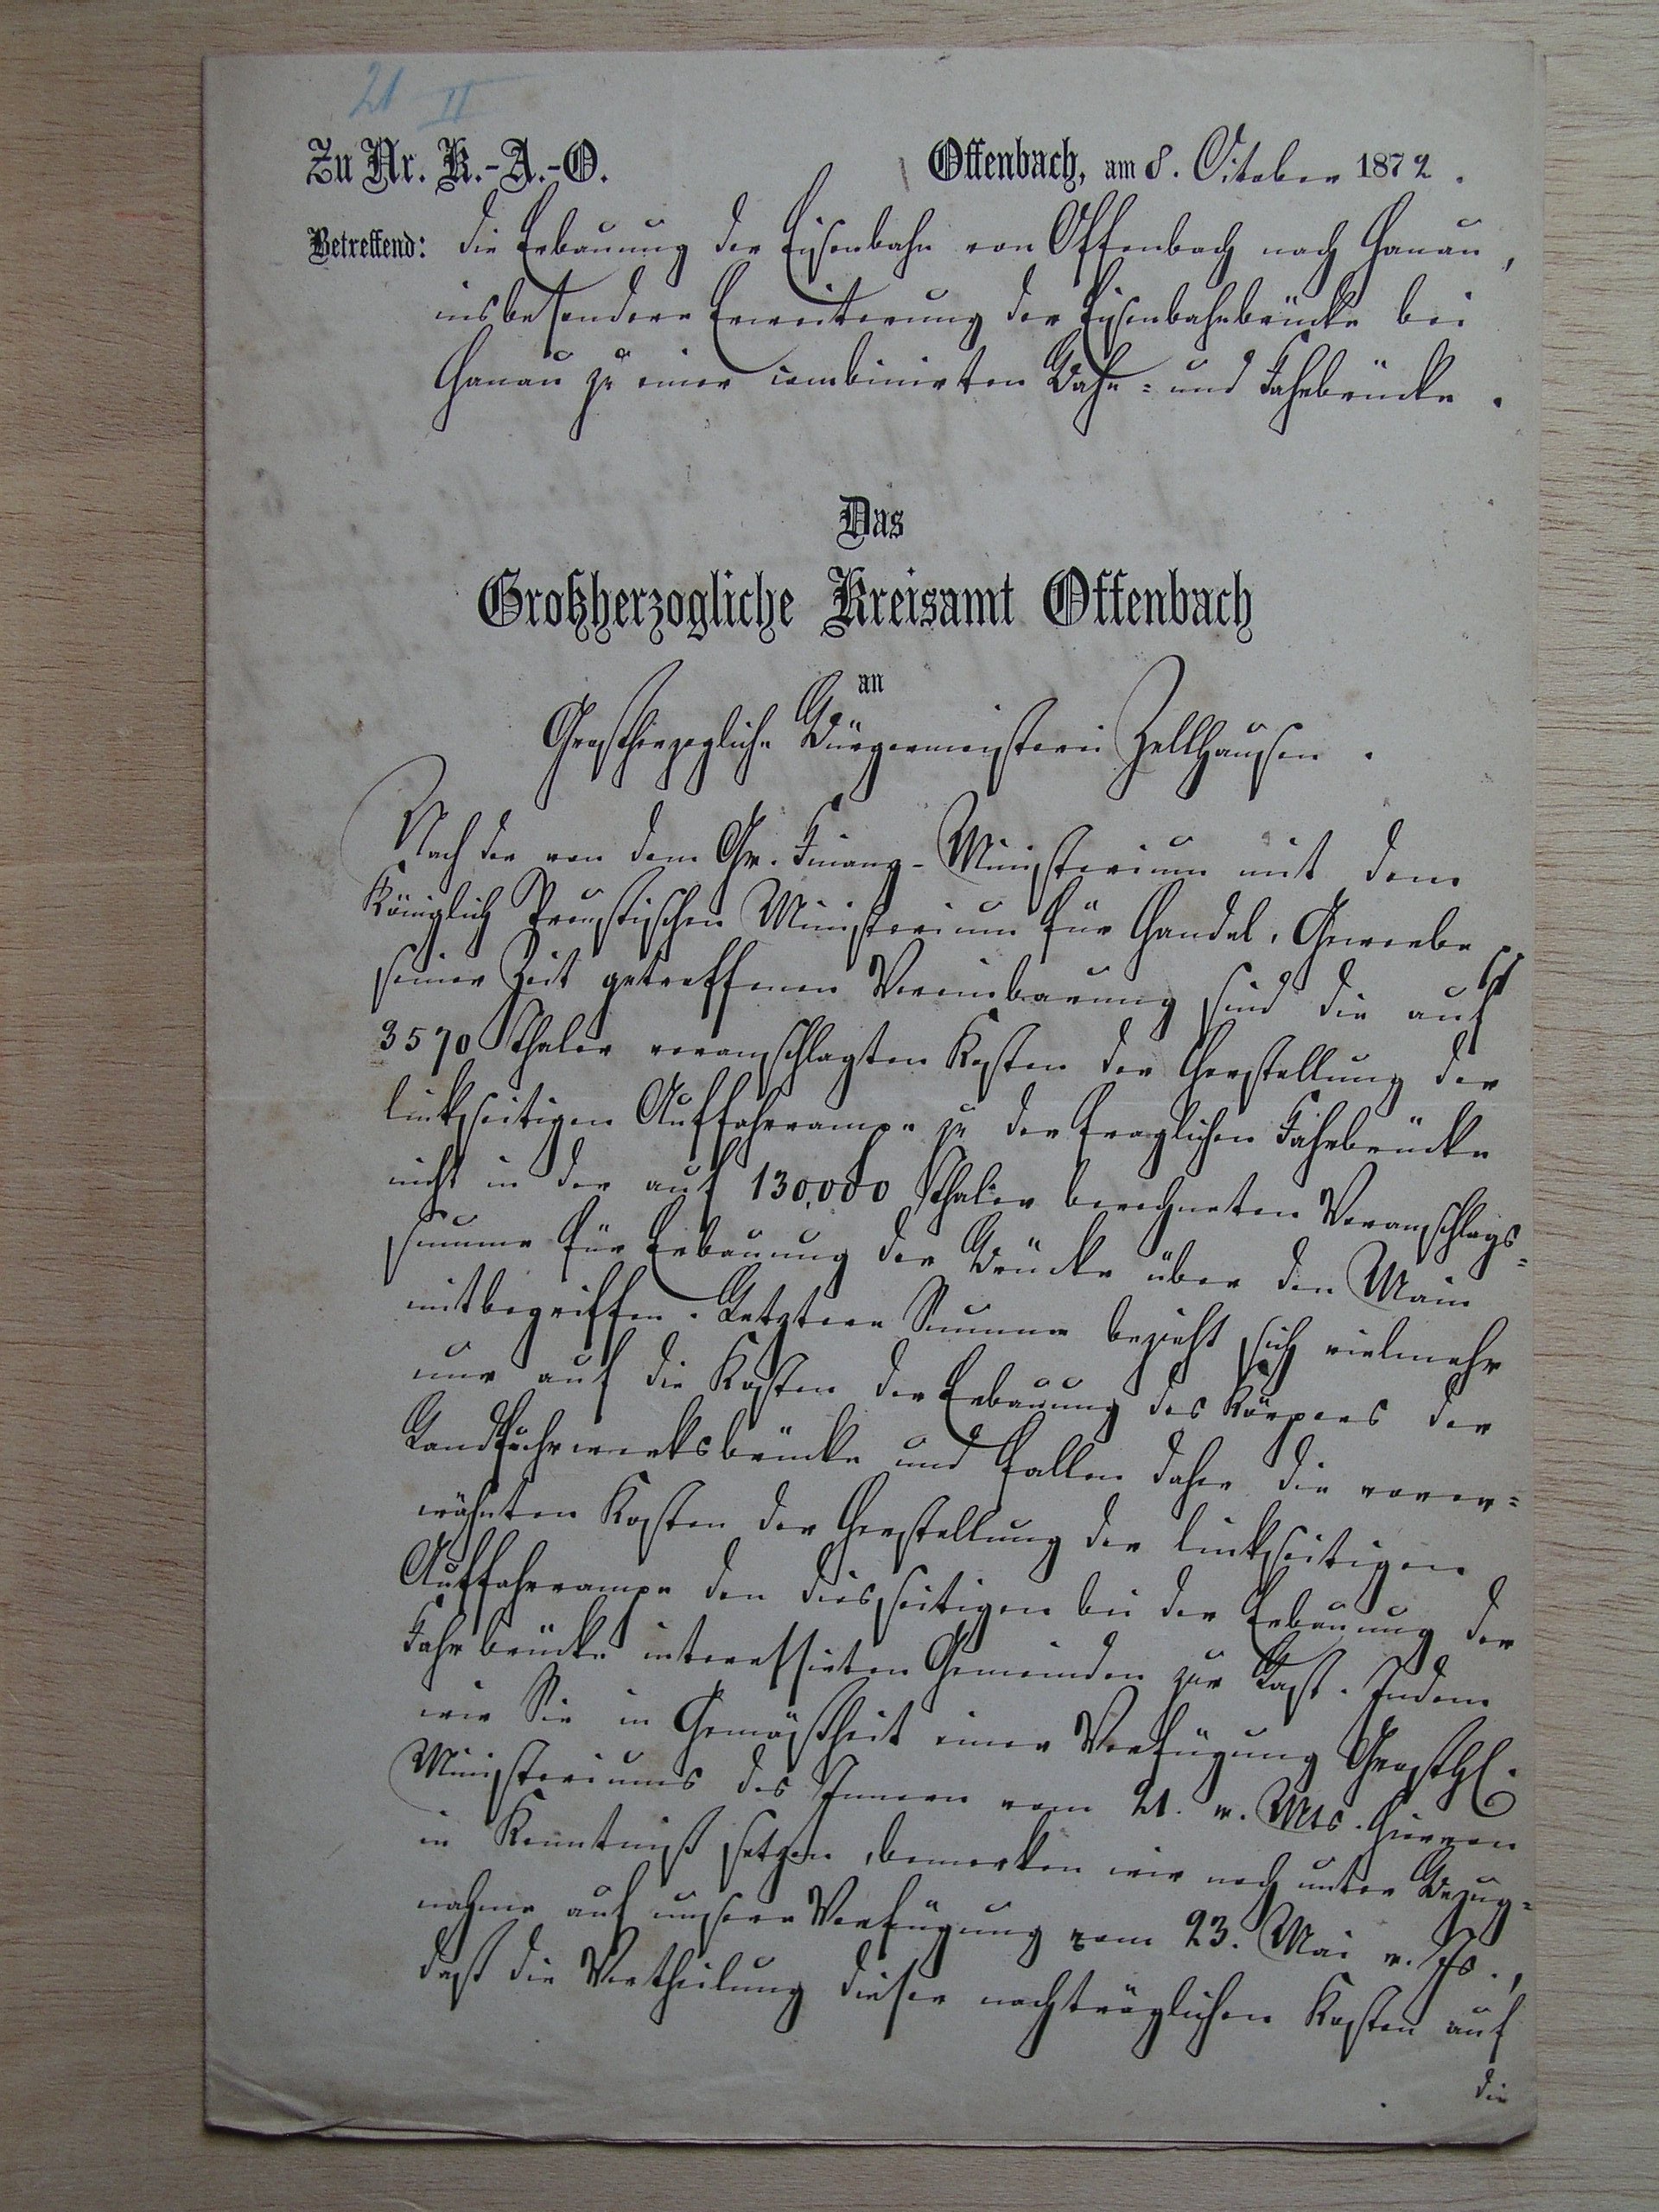 21 II
Zu Nr. K.-A.-O.
Offenbach, am 8. October 1872.
Betreffend: die Erbauung der Eisenbahn von Offenbach nach Hanau,
insbesondere Erweiterung der Eisenbahnbrücke bei
Hanau zu einer combinirten Bahn- und Fahrbrücke.
Das
Großherzogliche Kreisamt Offenbach
an
Großherzogliche Bürgermeisterei Zellhausen.
Nach der von dem Gr. Finanz-Ministerium mit dem
Königlich Preußischen Ministerium für Handel, Gewerbe pp
seiner Zeit getroffenen Vereinbarung sind die auf
3570 Thaler veranschlagten Kosten der Herstellung der
linksseitigen Auffahrrampe zu der fraglichen Fahrbrücke
nicht in der auf 130,000 Thaler berechneten Voranschlags-
summe für Erbauung der Brücke über den Main
mitbegriffen. Letztere Summe bezieht sich vielmehr
nur auf die Kosten der Erbauung des Körpers der
Landfuhrwerksbrücke und fallen daher die vorer-
wähnten Kosten der Herstellung der linksseitigen
Auffahrrampe den diesseitigen bei der Erbauung der
Fahrbrücke interessirten Gemeinden zur Last. Indem
wir Sie in Gemäßheit einer Verfügung Großhl.
Ministeriums des Innern vom 21. v. Mts. hiervon
in Kenntniß setzen, bemerken wir noch unter Bezug-
nahme auf unsere Verfügung vom 23. Mai v. Js.,
daß die Vertheilung dieser nachträglichen Kosten auf
die